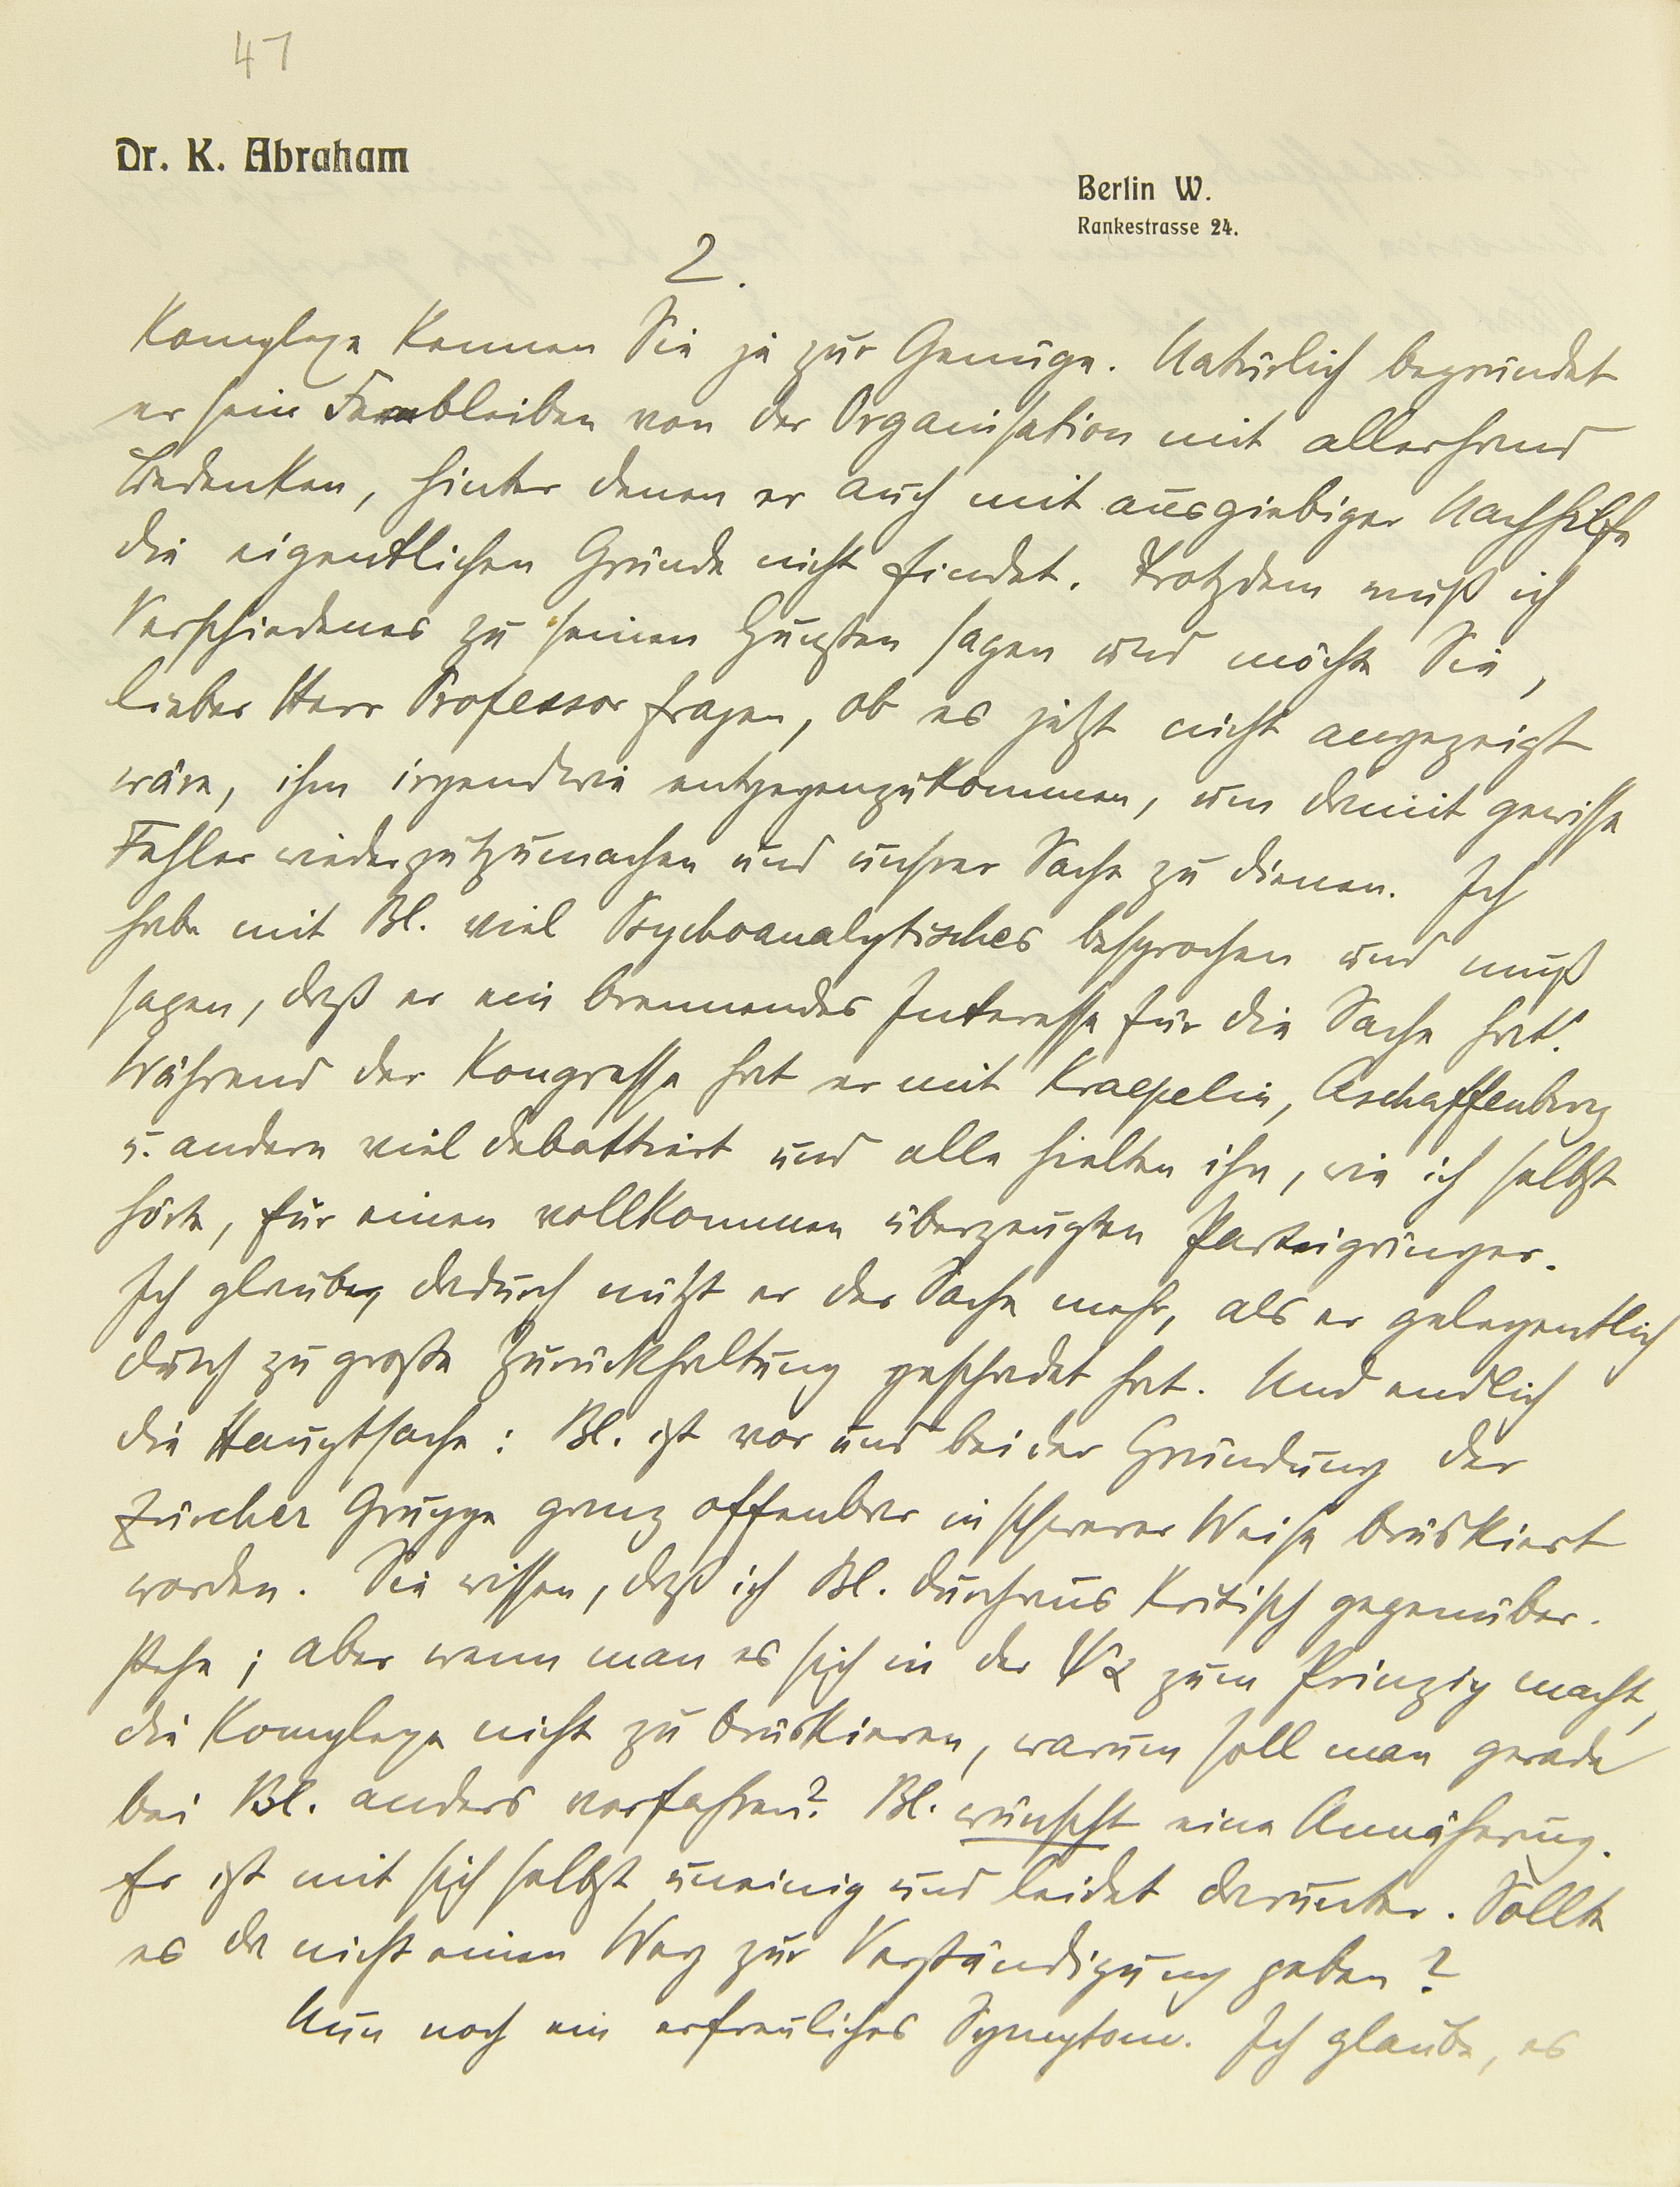 47
Dr. K. Abraham
Berlin W.
Rankestrasse 24.
2.
Komplexe kennen Sie ja zur Genüge. Natürlich begründet
er sein Fernbleiben von der Organisation mit allerhand
Bedenken, hinter denen er auch mit ausgiebiger Nachhilfe
die eigentlichen Gründe nicht findet. Trotzdem muß ich
Verschiedenes zu seinen Gunsten sagen und möchte Sie,
lieber Herr Professor fragen, ob es jetzt nicht angezeigt
wäre, ihm irgendwie entgegenzukommen, um damit gewisse
Fehler wiedergutzumachen und unsrer Sache zu dienen. Ich
habe mit Bl. viel Psychoanalytisches besprochen und muß
sagen, daß er ein brennendes Interesse für die Sache hat.
Während der Kongresse hat er mit Kraepelin, Aschaffenburg
u. andern viel debattiert und alle hielten ihn, wie ich selbst
hörte, für einen vollkommen überzeugten Parteigänger.
Ich glaube, dadurch nützt er der Sache mehr, als er gelegentlich
durch zu große Zurückhaltung geschadet hat. Und endlich
die Hauptsache: Bl. ist vor und bei der Gründung der
Zürcher Gruppe ganz offenbar in schwerer Weise brüskiert
worden. Sie wissen, daß ich Bl. durchaus kritisch gegenüber-
stehe; aber wenn man es sich in der ΨΑ zum Prinzip macht,
die Komplexe nicht zu brüskieren, warum soll man gerade
bei Bl. anders verfahren? Bl. wünscht eine Annäherung.
Er ist mit sich selbst uneinig und leidet darunter. Sollte
es da nicht einen Weg zur Verständigung geben?
Nun noch ein erfreuliches Symptom. Ich glaube, es